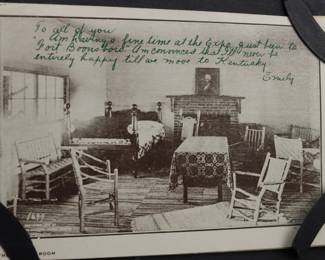 To all of you
"Am having a fine time at the Expo. Just been to
Fort Boonesboro. Am convinced that I'll never be
entirely happy till we move to Kentucky.
Emily
ROOM